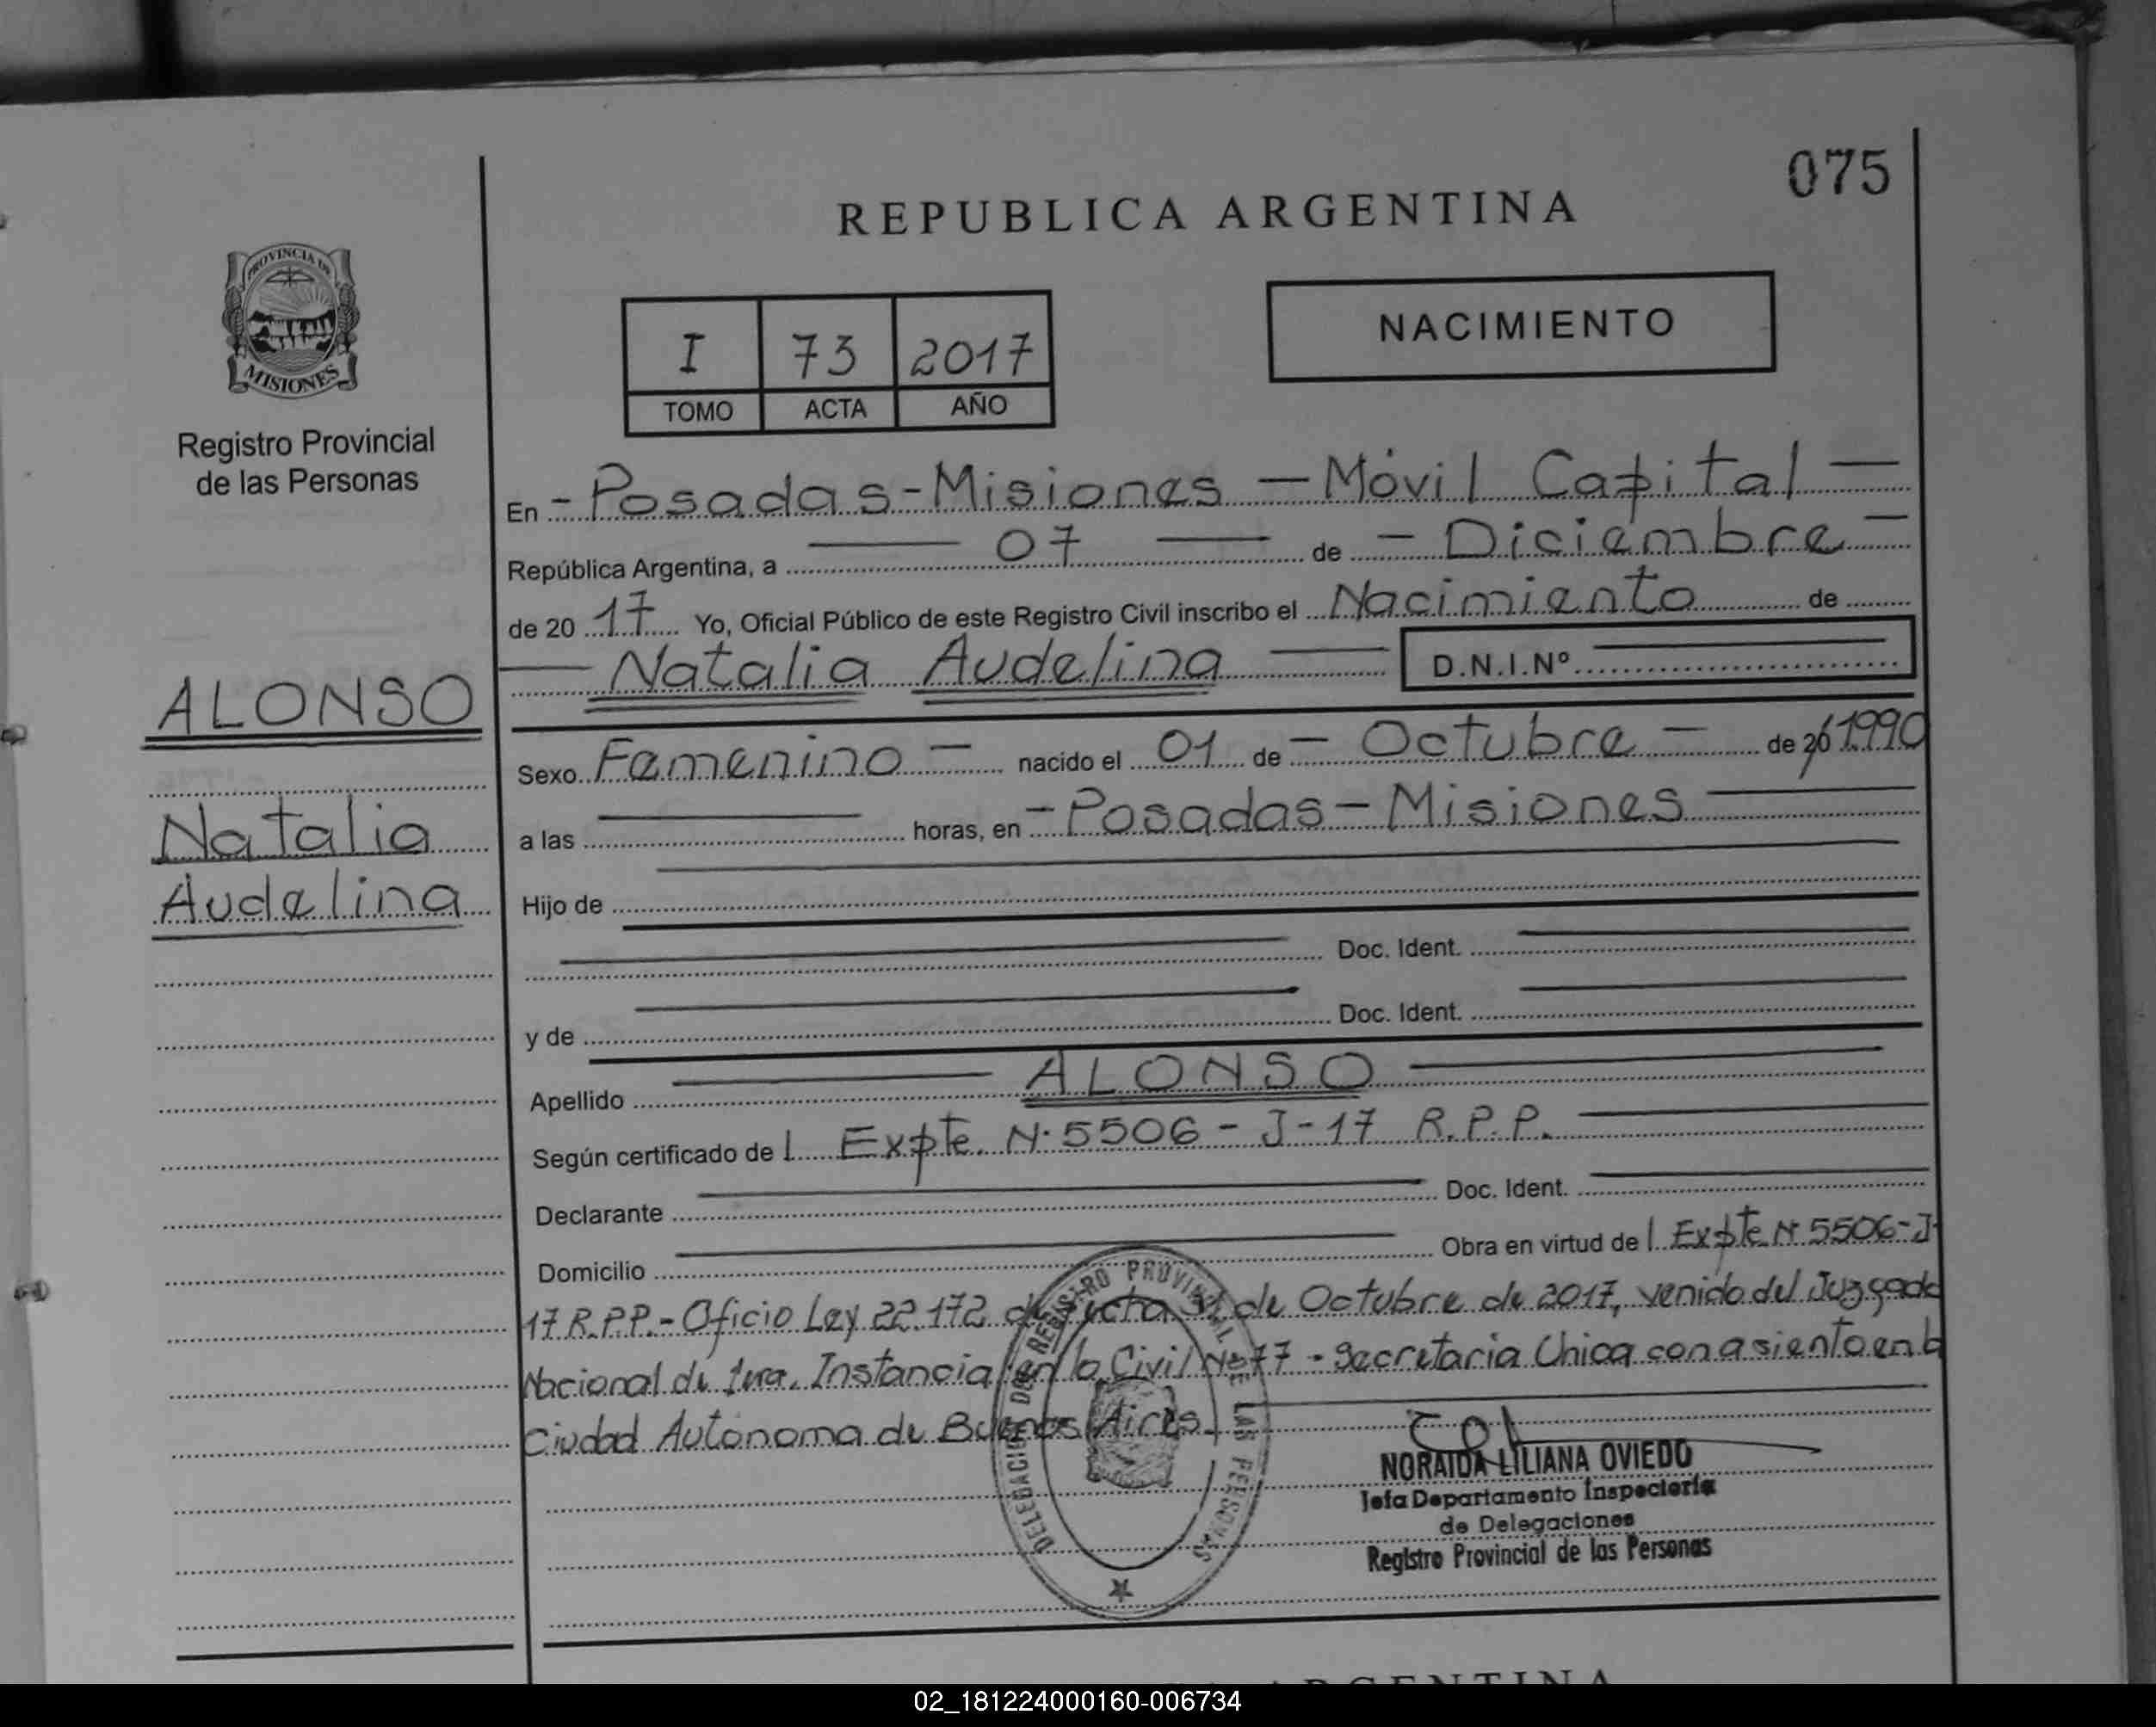 075
REPUBLICA ARGENTINA
PROVINCIA DE
MISIONES
Registro Provincial
de las Personas
I 73 2017
TOMO ACTA AÑO
NACIMIENTO
En - Posadas - Misiones — Móvil Capital —
República Argentina, a — 07 — de - Diciembre -
de 20 17 Yo, Oficial Público de este Registro Civil inscribo el Nacimiento de
— Natalia Audelina — D.N.I.Nº
ALONSO
Natalia
Audelina
Sexo Femenino - nacido el 01 de - Octubre - de 20 1990
a las horas, en - Posadas - Misiones
Hijo de
Doc. Ident.
y de Doc. Ident.
Apellido ALONSO
Según certificado de l Expte. N· 5506 - J - 17 R.P.P.
Declarante Doc. Ident.
Domicilio Obra en virtud de l Expte N· 5506 - J-
17 R.P.P. - Oficio Ley 22.172, de fecha de Octubre de 2017, venido del Juzgado
Nacional de 1era. Instancia en lo Civil Nº 77 - Secretaria Chica con asiento en la
Ciudad Autónoma de Buenos Aires.
DELEGACION DEL REGISTRO PROVINCIAL DE LAS PERSONAS
NORAIDA LILIANA OVIEDO
Jefa Departamento Inspectoría
de Delegaciones
Registro Provincial de las Personas
ARGENTINA
02_181224000160-006734